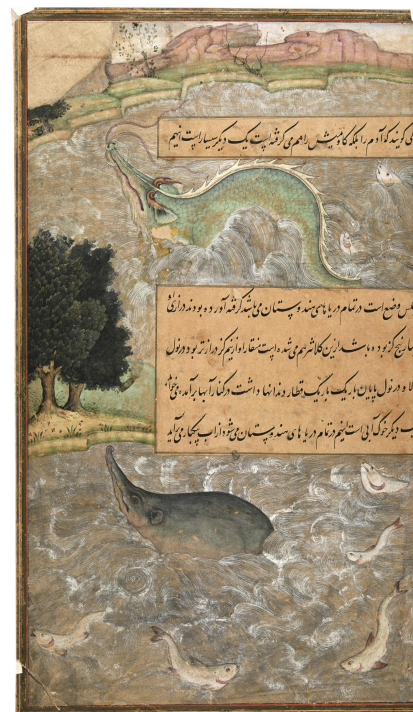 می گویند که آدم را بلکه گاومیش را هم می گرفته است یک دیگر سیسار است اینهم
وضع است در تمام دریا های هندوستان می باشد گرفته آورده بودند درازی
پنج گز بوده باشد ازین کلانتر هم می شده است منقار او از نیم گز درازتر بود در نول
و در نول پایان باریک باریک قطار دندانها داشت در کنار آبها برآمده می
دیگر خوک آبی است اینهم در تمام دریا های هندوستان می شود از آب یکبارگی می برآید